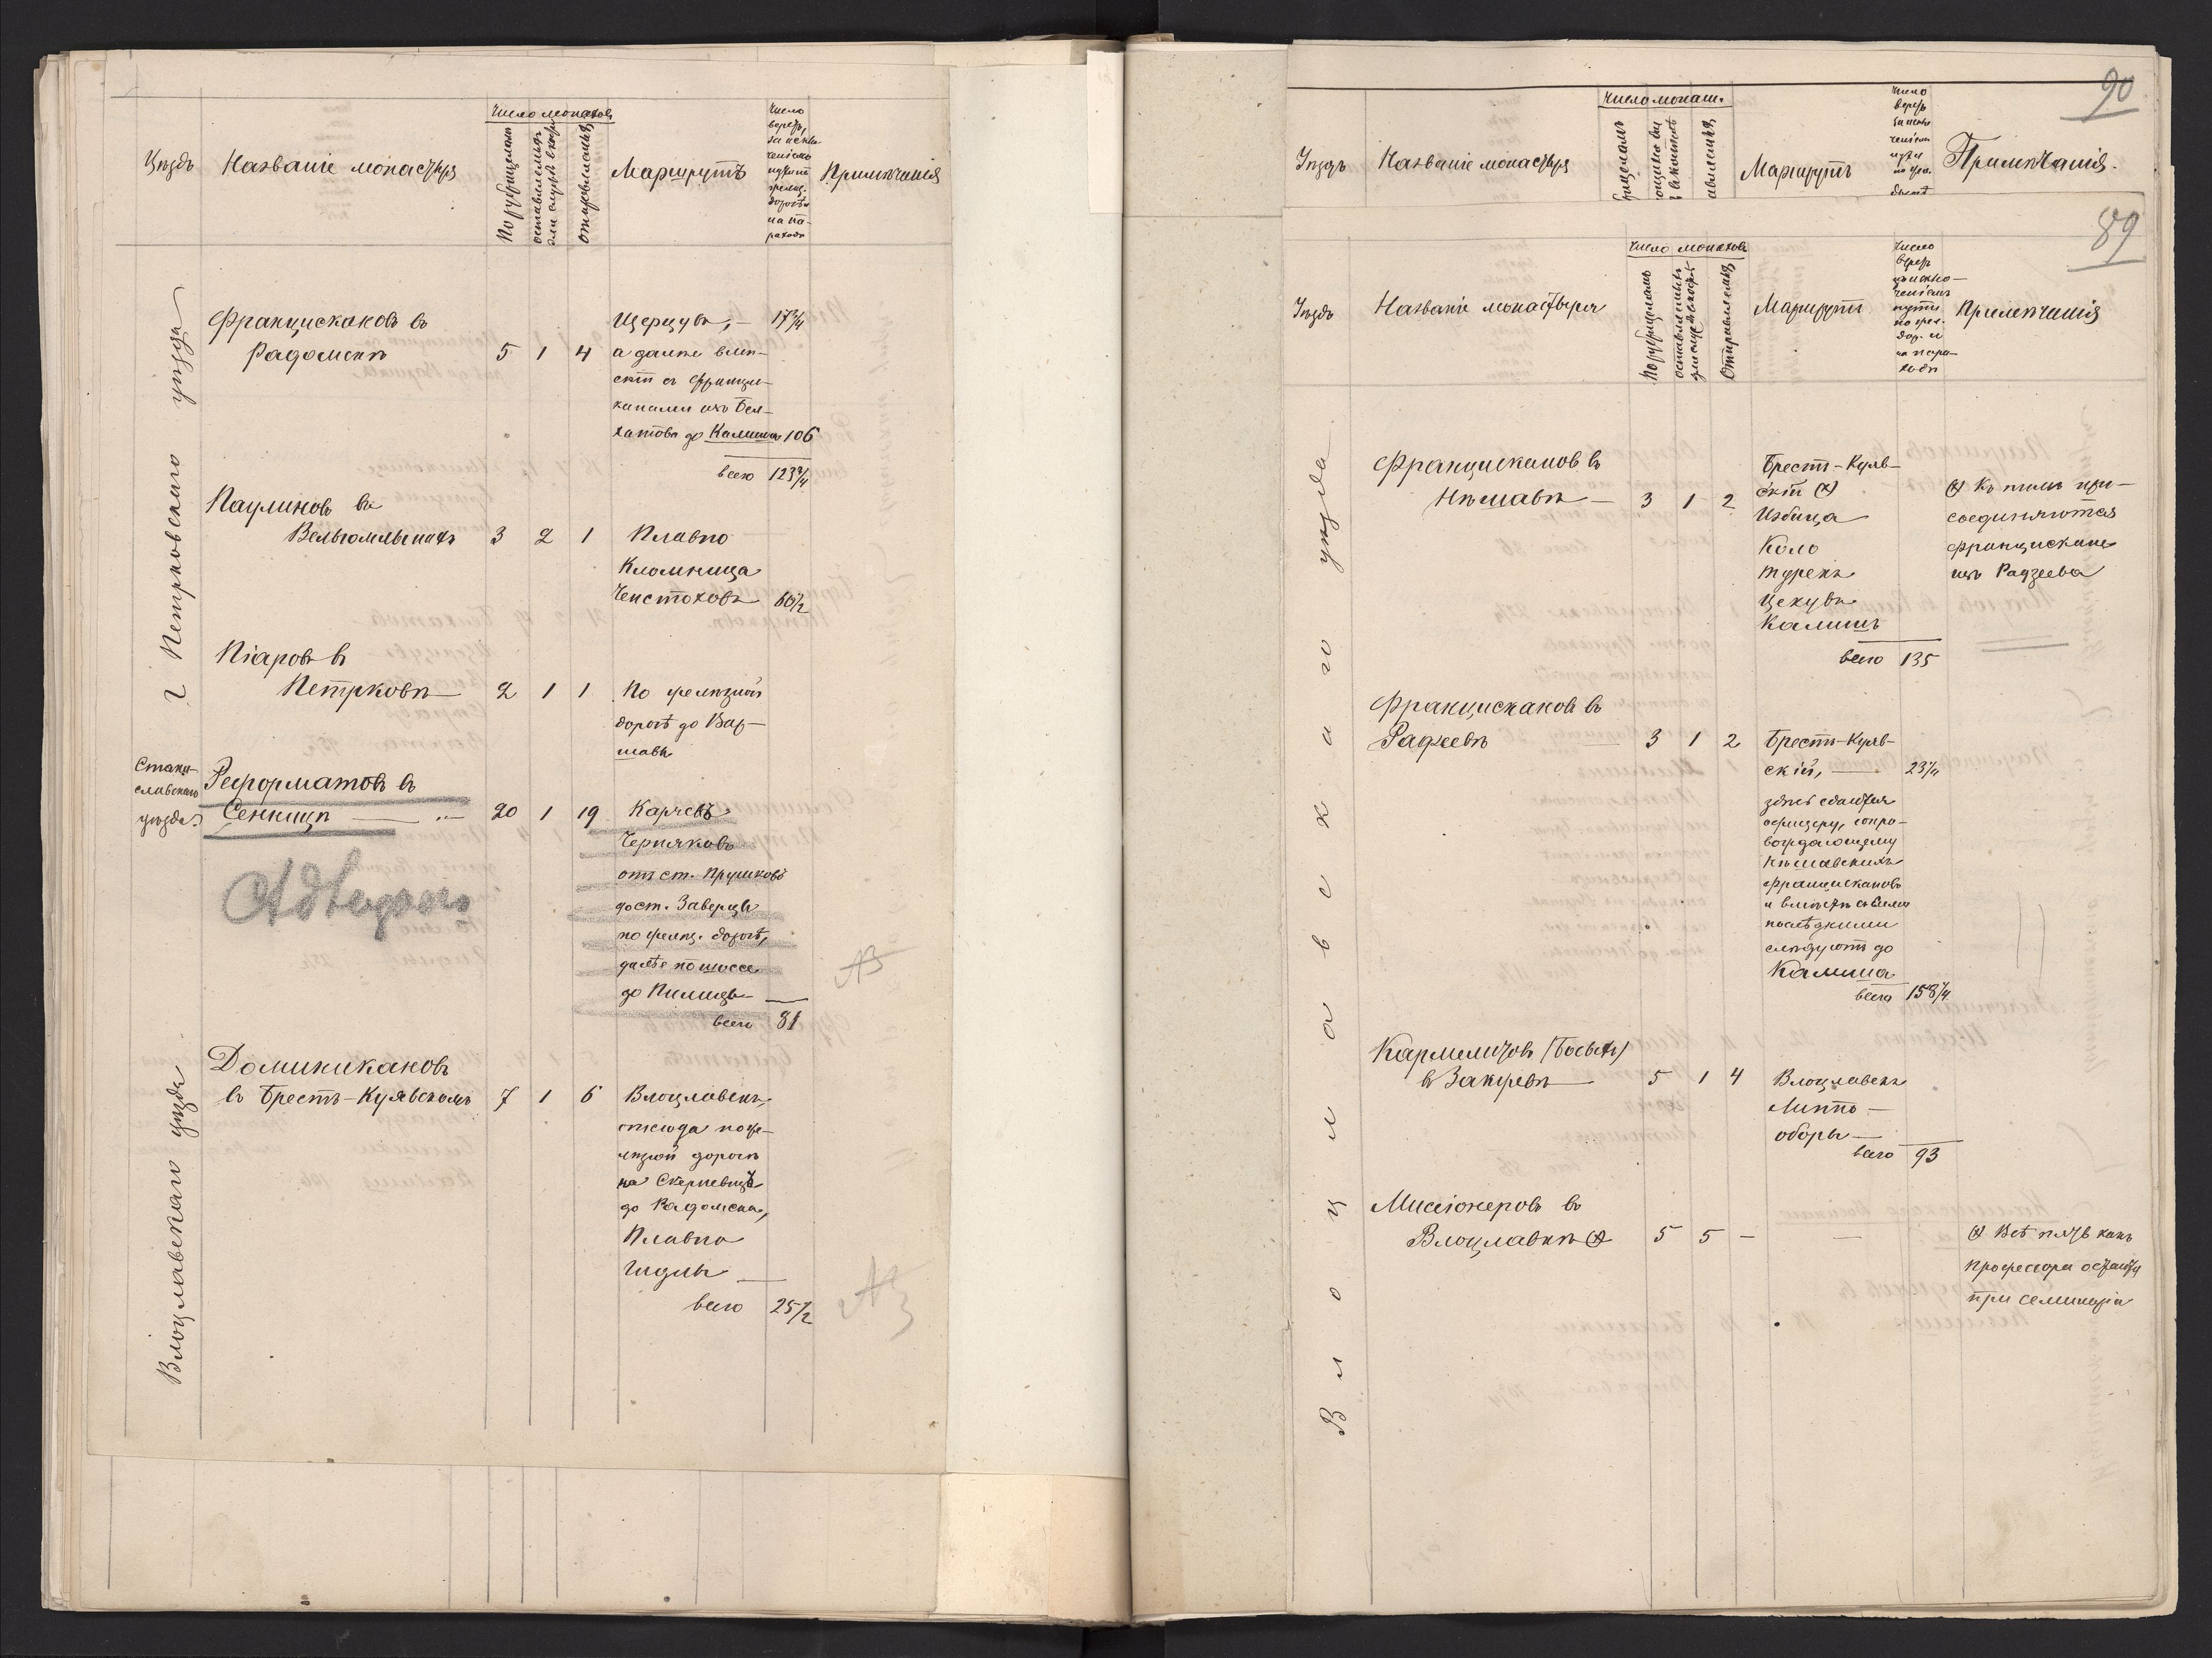 Уѣздъ
Названіе монастыря
Число монаховъ
По рубрицеламъ
оставляемыхъ
для службы в костел
отправляемыхъ
Маршрутъ
Число
верстъ,
за исклю-
ченіемъ
пути по
желѣз.
дорогѣ и
на па-
роходѣ
Примѣчанія
Петрковскаго уѣзда
Францискановъ въ
Радомскѣ 5 1 4
Щерцувъ, — 17 3/4
а далѣе вмѣ-
стѣ съ Францис-
канами изъ Бел-
хатова до Калиша 106
всего 123 3/4
Паулиновъ въ
Вельгомлынахъ 3 2 1 Плавно
Кломница
Ченстоховъ 60 1/2
Піаровъ въ
Петрковѣ 2 1 1 По желѣзной
дорогѣ до Вар-
шавы
Стани-
славскаго
уѣзда
Реформатовъ въ
Сенницѣ 20 1 19 Карчевъ
Черняковъ
отъ ст. Прушковъ
до ст. Заверцы
по желѣз. дорогѣ,
далѣе по шоссе
до Пилицы —
всего 81
Влоцлавскаго уѣзда
Доминикановъ
въ Брестъ-Куявскомъ 7 1 6 Влоцлавекъ,
отсюда по же-
лѣзной дорогѣ
на Скерневицы
до Радомска,
Плавно
Гидлы —
всего 25 1/2
90
Уѣздъ
Названіе монастыря
Число монах.
Маршрутъ
Примѣчанія.
89
Уѣздъ
Названіе монастыря
Число монаховъ
По рубрицеламъ
оставляемыхъ
для службы в костел
Отправляемыхъ
Маршрутъ
Число
верстъ
за исклю-
ченіемъ
пути
по жел.
дор. и
на паро-
ходѣ
Примѣчанія
Влоцлавскаго уѣзда
Францискановъ въ
Нѣшавѣ — 3 1 2
Брестъ-Куяв-
скій (x)
Избица
Коло
Турекъ
Цекувъ
Калишъ
всего 135
(x) Къ нимъ при-
соединяются
францискане
изъ Радзеева
Францискановъ въ
Радзеевѣ 3 1 2 Брестъ-Куяв-
скій, — 23 1/4
здѣсь сдаются
офицеру, сопро-
вождающему
Нѣшавскихъ
францискановъ
и вмѣстѣ съ сими
послѣдними
слѣдуютъ до
Калиша
всего 158 1/4
Кармелитовъ (Босыхъ)
въ Закржевѣ 5 1 4 Влоцлавекъ
Липно —
оборы —
всего 93
Миссіонеровъ въ
Влоцлавкѣ (x) 5 5 — —
(x) Всѣ пять какъ
профессора остаются
при семинаріи